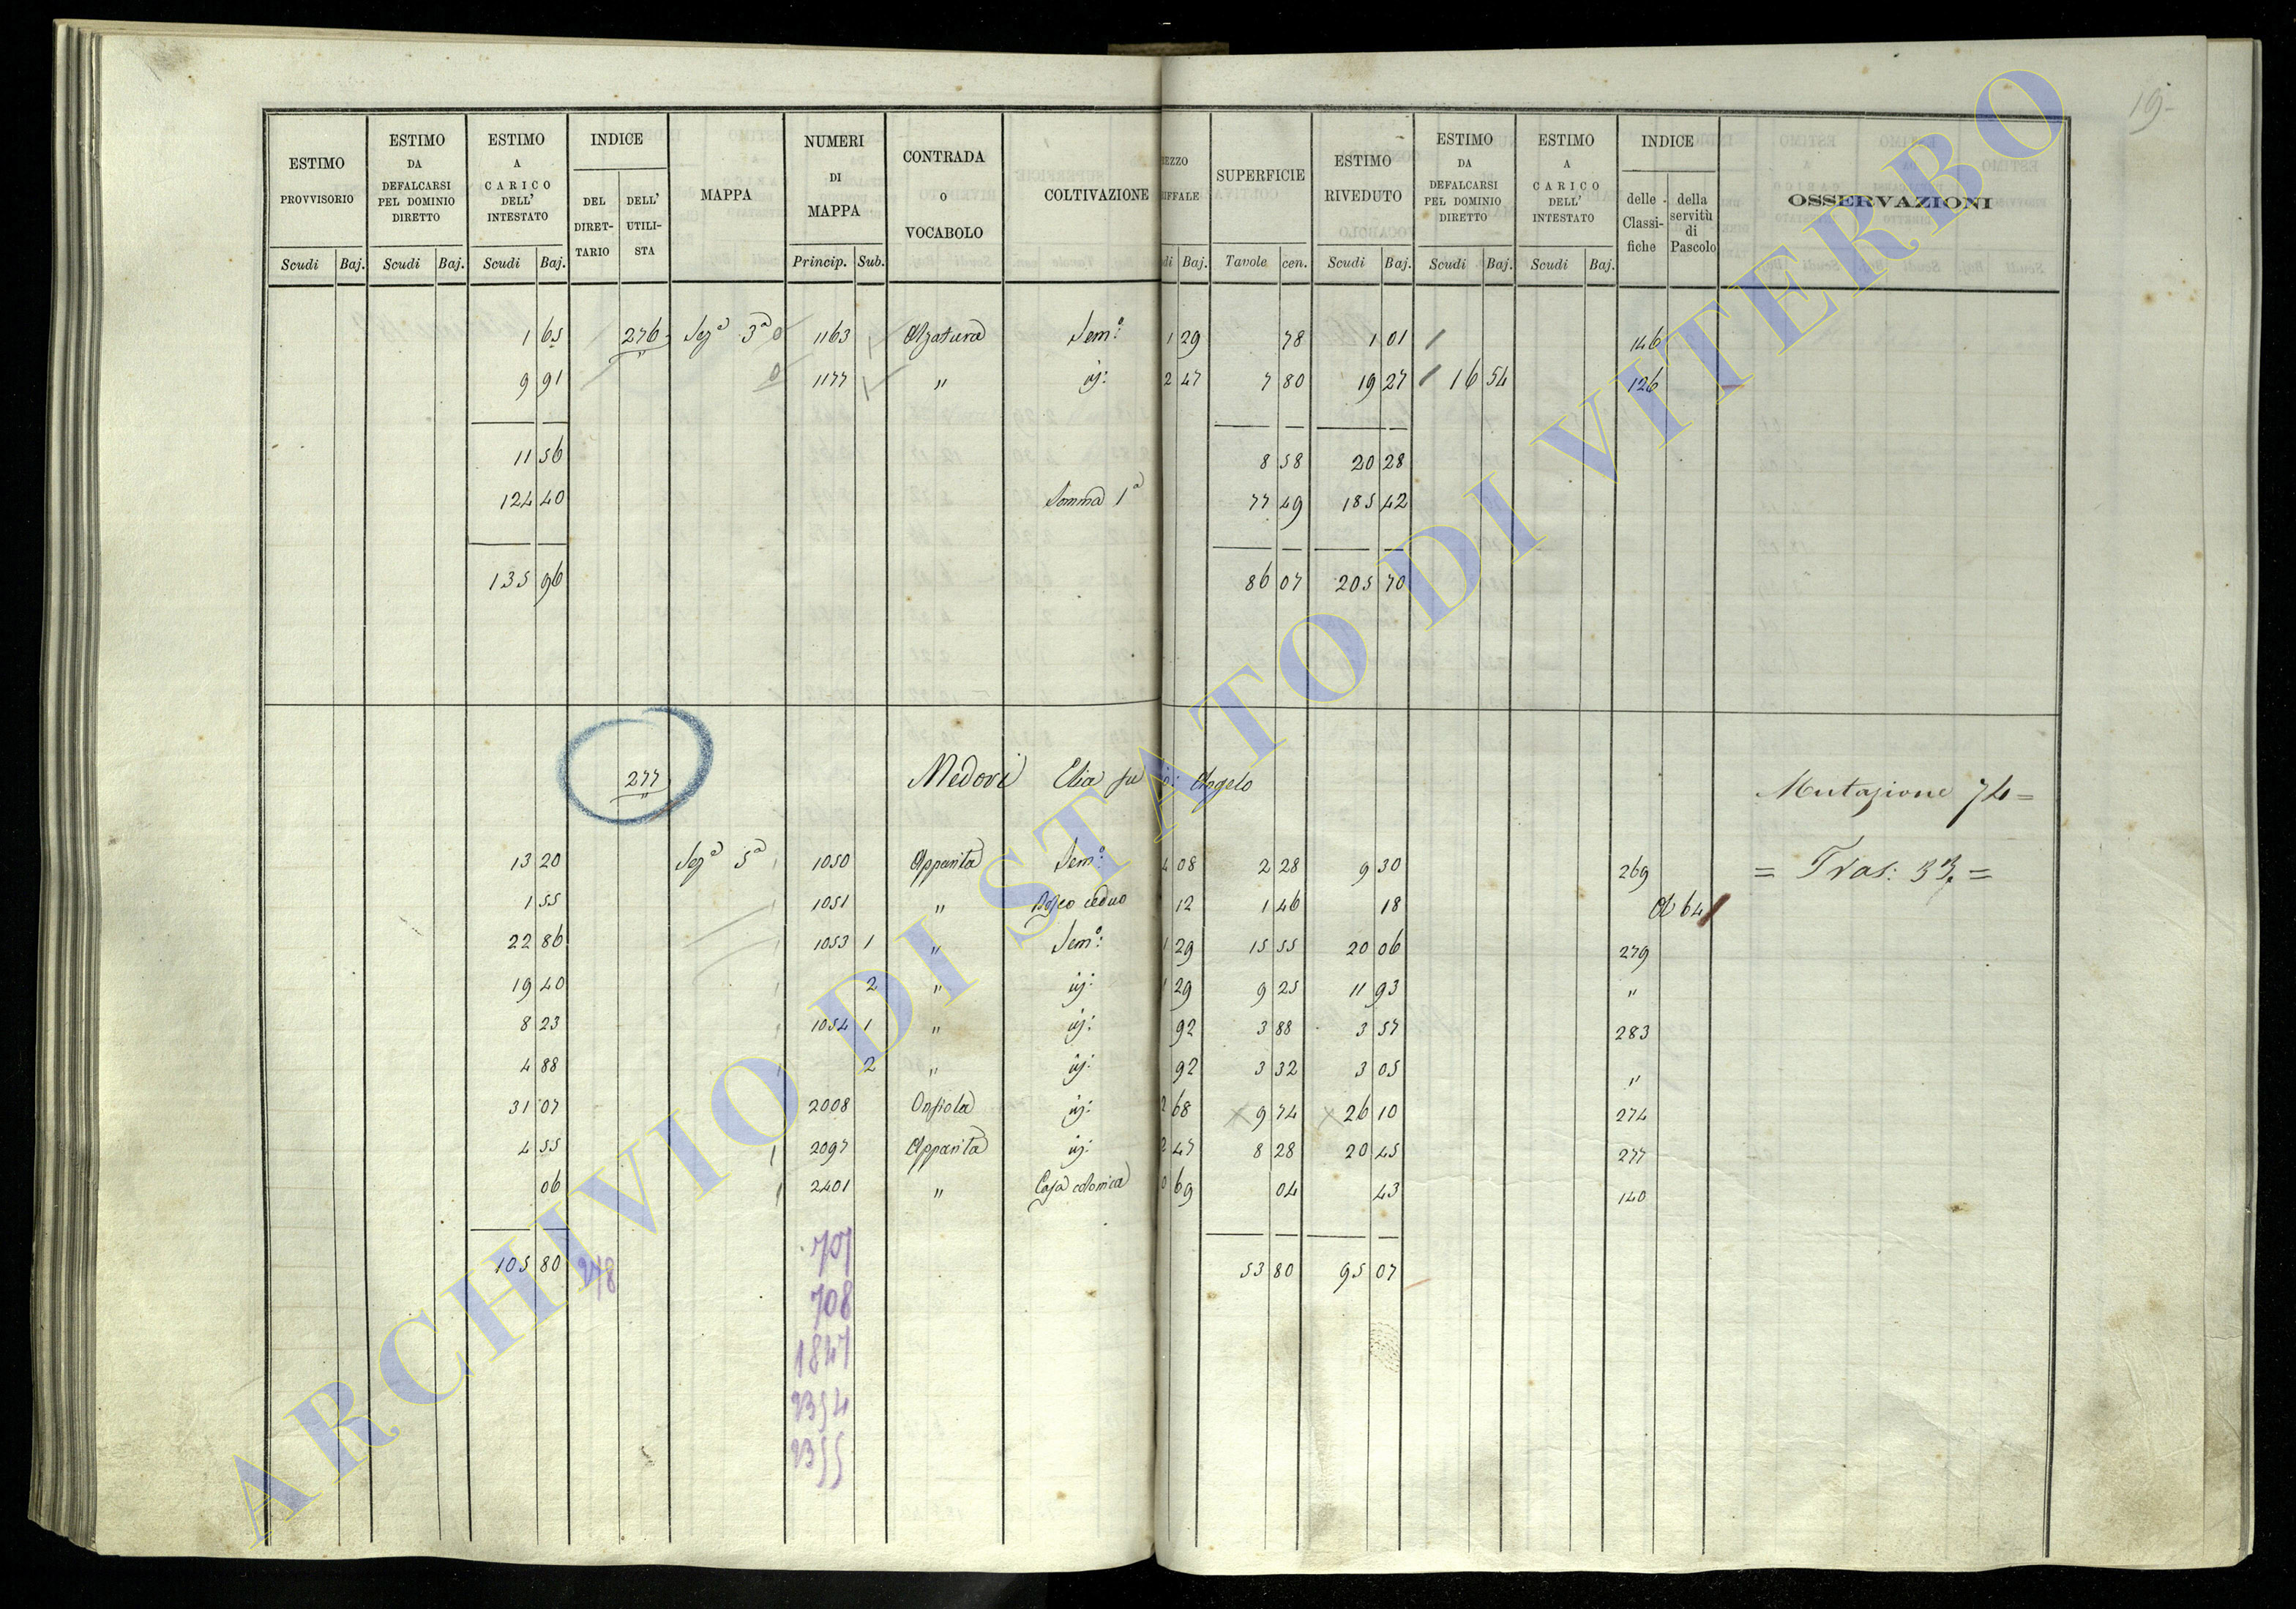 19
ESTIMO PROVVISORIO | ESTIMO DA DEFALCARSI PEL DOMINIO DIRETTO | ESTIMO A CARICO DELL' INTESTATO | INDICE | MAPPA | NUMERI DI MAPPA | CONTRADA O VOCABOLO | COLTIVAZIONE | SUPERFICIE | ESTIMO RIVEDUTO | ESTIMO DA DEFALCARSI PEL DOMINIO DIRETTO | ESTIMO A CARICO DELL' INTESTATO | INDICE | OSSERVAZIONI
DEL DIRET-TARIO | DELL' UTILI-STA | delle Classi-fiche | della servitù di Pascolo
Scudi Baj. | Scudi Baj. | Scudi Baj. | Princip. Sub. | Baj. | Tavole cen. | Scudi Baj. | Scudi Baj. | Scudi Baj.
1 65 276 Sezª 3ª 1163 Alzatura Semº: 1 29 78 1 01 146
9 91 1177 " id: 2 47 7 80 19 27 16 54 126
11 56 8 58 20 28
124 40 Somma 1ª 77 49 185 42
135 96 86 07 205 70
277 Medori Elia fu Angelo Mutazione 74=
13 20 Sezª 5ª 1050 Apparita Semº: 4 08 2 28 9 30 269 = Tras: 33 =
1 55 1051 " Bosco ceduo 12 1 46 18 A 64
22 86 1053 1 " Semº: 1 29 15 55 20 06 279
19 40 2 " id: 1 29 9 25 11 93 "
8 23 1054 1 " id: 92 3 88 3 57 283
4 88 2 " id: 92 3 32 3 05 "
31 07 2008 id: 2 68 9 74 26 10 274
4 55 2097 Apparita id: 2 47 8 28 20 45 277
06 2401 " Casa colonica 0 69 04 43 140
105 80 278 53 80 95 07
707
708
1847
2354
2355
ARCHIVIO DI STATO DI VITERBO